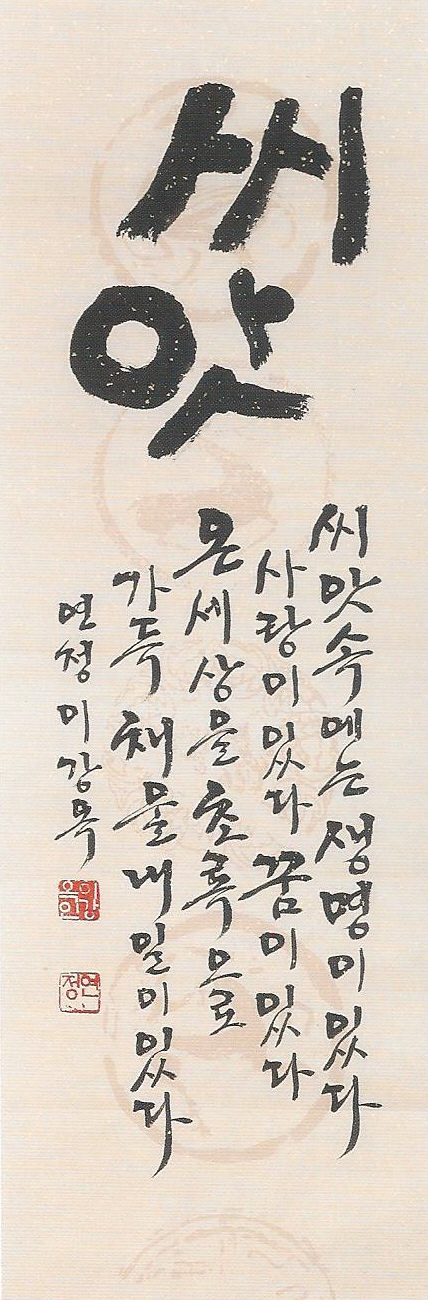 씨
앗
씨앗속에는생명이있다
사랑이있다꿈이있다
온세상을초록으로
가득채울내일이있다
연정이강옥
이강옥
연정